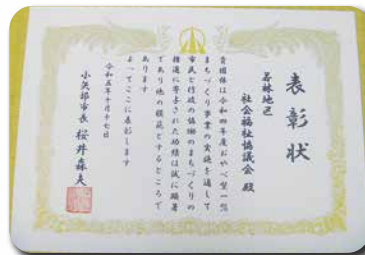 表彰状
若林地区
社会福祉協議会 殿
貴団体は令和四年度おやべ型一%
まちづくり事業の実施を通して
市民と行政の協働のまちづくりの
推進に寄与された功績は誠に顕著
であり他の模範とするところで
あります
よってここに表彰します
令和五年十月十七日
小矢部市長 桜井森夫